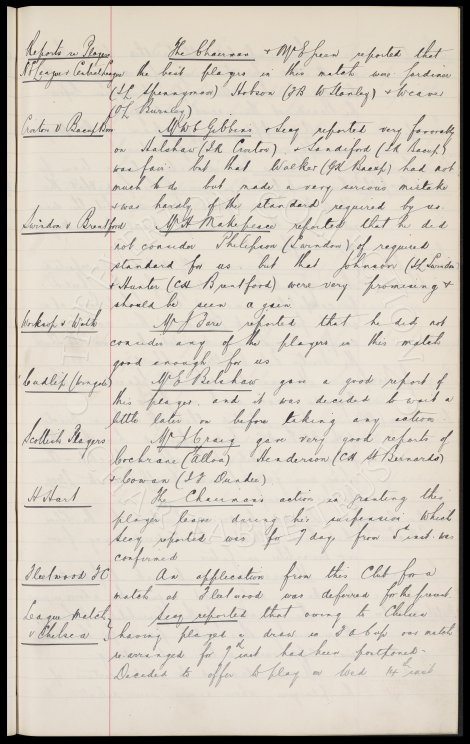 Reports re Players The Chairman & Mr E Green reported that
N E League v Central League the best players in this match was Gardiner
(I L Spennymoor) Hobson (F B W Stanley) & Weaver
(O L Burnley)
Croston v Bacup Boro Mr W E Gibbins & Secy reported very favorably
on Halshaw (I R Croston) & Sandiford (I R Bacup)
was fair. but that Walker (G K Bacup) had not
much to do but made a very serious mistake
& was hardly of the standard required by us.
Swindon v Brentford Mr H Makepeace reported that he did
not consider Philipson (Swindon) of required
standard for us but that Johnson (I L Swindon)
& Hunter (C H Brentford) were very promising &
should be seen again
Worksop v Wath Mr J Bare reported that he did not
consider any of the players in this match
good enough for us
Cudlip (Kings) Mr E Belshaw gave a good report of
this player and it was decided to wait a
little later on before taking any action.
Scottish Players Mr J Craig gave very good reports of
Cochrane (Alloa) Henderson (C H St Bernards)
& Cowan (I F Dundee)
H Hart The Chairmans action in granting this
player leave during his suspension which
Secy reported was for 7 days from 5th inst. was
confirmed
Fleetwood FC An application from this Club for a
match at Fleetwood was deferred for the present.
League Match Secy reported that owing to Chelsea
v Chelsea having played a draw in F A Cup our match
rearranged for 7th inst had been postponed.
Decided to offer to play on Wed 14th inst